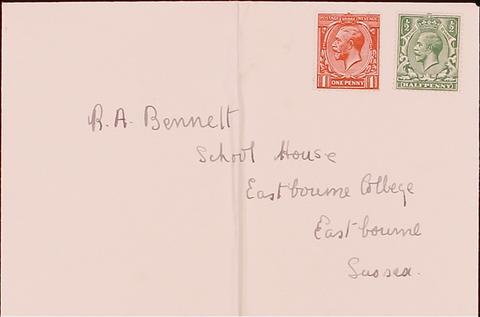 POSTAGE REVENUE
1 ONE PENNY 1
½ ½
HALFPENNY
R. A. Bennett
School House
Eastbourne College
Eastbourne
Sussex.